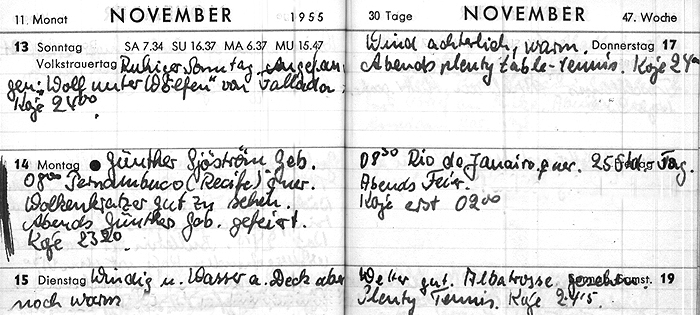 11. Monat NOVEMBER 1955
13 Sonntag SA 7.34 SU 16.37 MA 6.37 MU 15.47
Volkstrauertag Ruhiger Sonntag. Angefan
gen: "Wolf unter Wölfen" von Fallada.
Koje 24⁰⁰
14 Montag ● Günther Sjöström Geb.
08⁰⁰ Pernambuco (Recife) quer.
Wolkenkratzer gut zu sehen.
Abends Günther Geb. gefeiert.
Koje 23²⁰
15 Dienstag Windig u. Wasser a. Deck aber
noch warm
30 Tage NOVEMBER 47. Woche
Wind achterlich, warm. Donnerstag 17
Abends plenty table-tennis. Koje 24⁰⁰
08³⁰ Rio de Janairo quer. 25 Std. Tag.
Abends Feier.
Koje erst 02⁰⁰
Wetter gut. Albatrosse gesehen. 19
Plenty Tennis. Koje 24¹⁵.